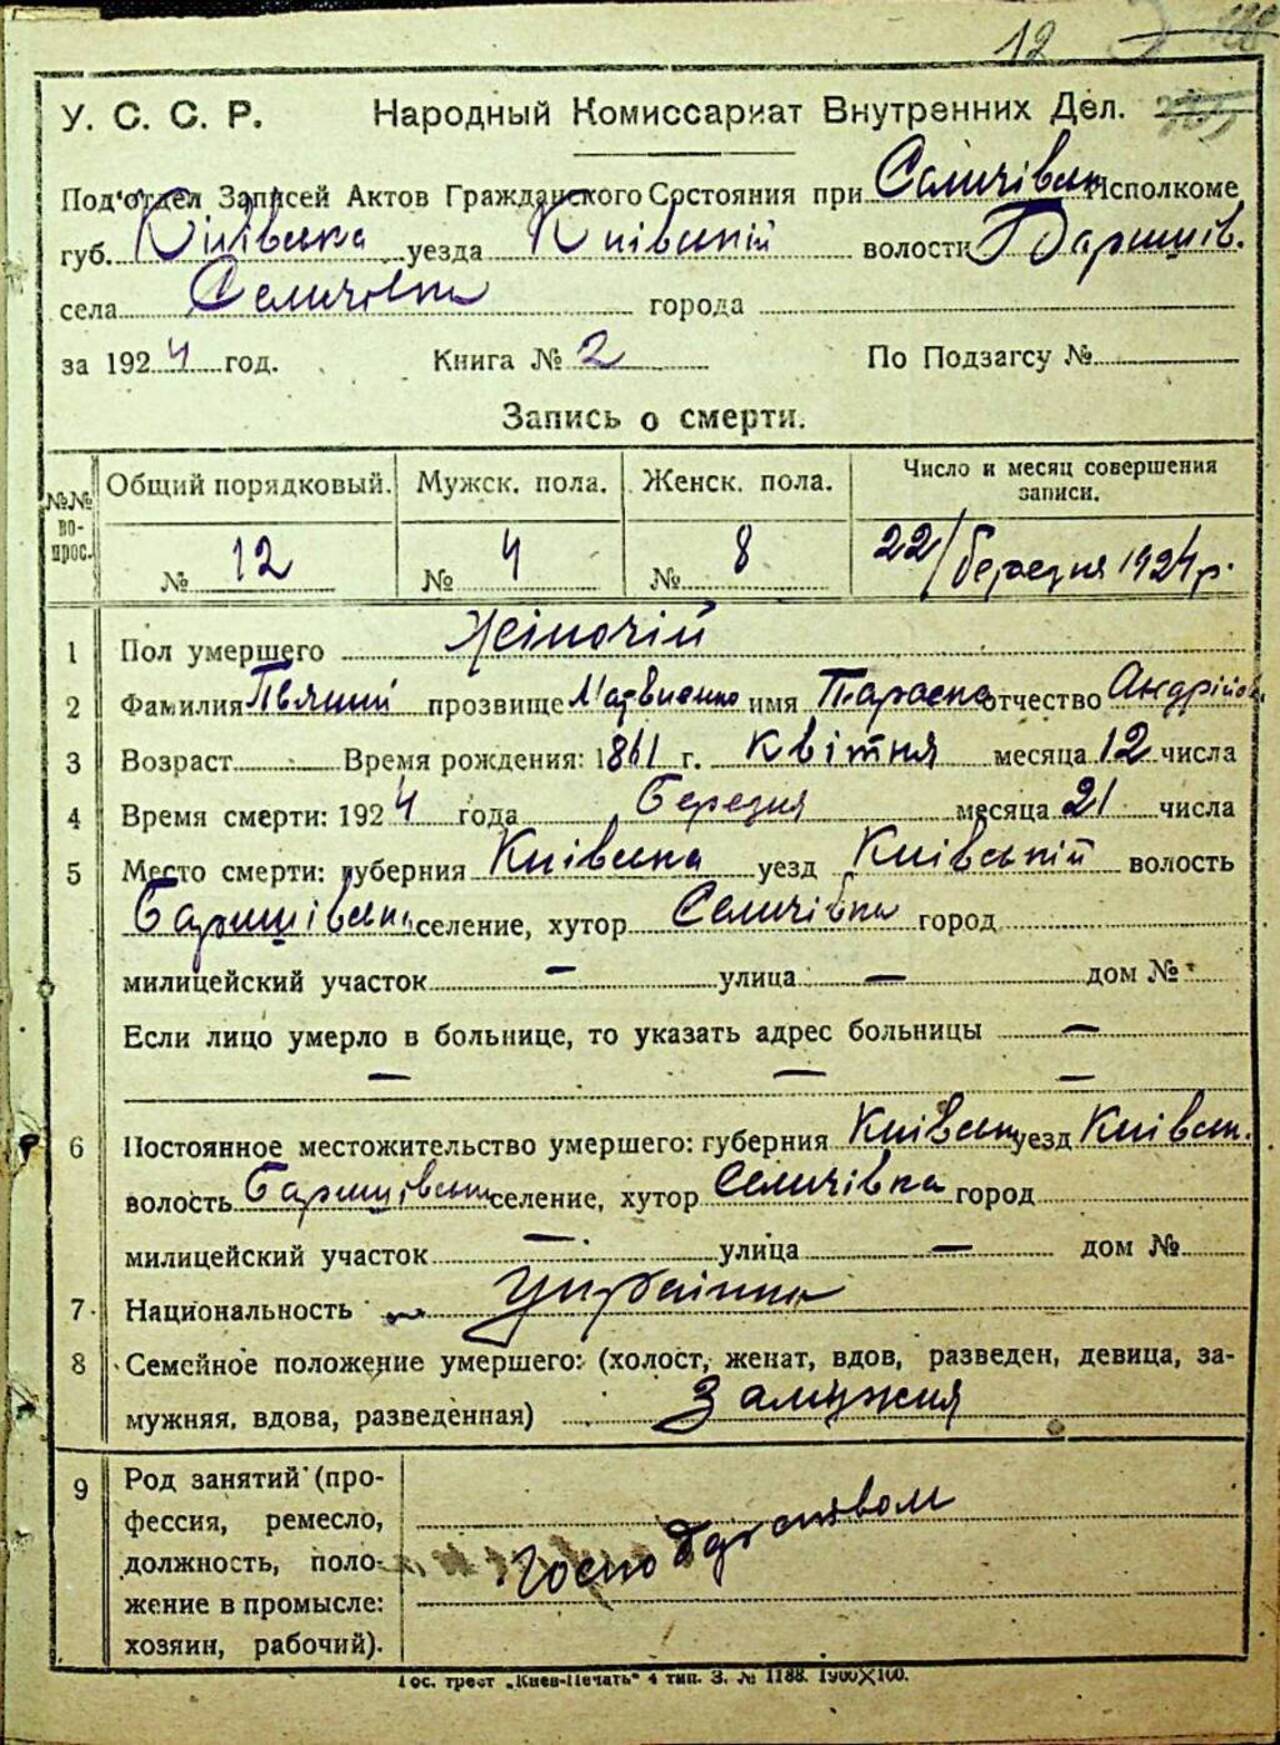 12
У. С. С. Р. Народный Комиссариат Внутренних Дел.
Под'отдел Записей Актов Гражданского Состояния при Селичівськ Исполкоме
губ. Київська уезда Київській волости Баришів.
села Селичівки города
за 1924 год. Книга № 2 По Подзагсу №
Запись о смерти.
№№ вопрос. Общий порядковый. Мужск. пола. Женск. пола. Число и месяц совершения записи.
№ 12 № 4 № 8 22/березня 1924 р.
1 Пол умершего Жіночій
2 Фамилия прозвище Матвиенко имя Параска отчество Андрійов
3 Возраст Время рождения: 1861 г. Квітня месяца 12 числа
4 Время смерти: 1924 года Березня месяца 21 числа
5 Место смерти: губерния Київська уезд Київській волость
Баришівськ селение, хутор Селичівка город
милицейский участок — улица — дом №
Если лицо умерло в больнице, то указать адрес больницы —
— — —
6 Постоянное местожительство умершего: губерния Київськ уезд Київськ.
волость Баришівськ селение, хутор Селичівка город
милицейский участок — улица — дом №
7 Национальность Українка
8 Семейное положение умершего: (холост, женат, вдов, разведен, девица, за-
мужняя, вдова, разведенная) Замужня
9 Род занятий (про-
фессия, ремесло,
должность, поло-
жение в промысле:
хозяин, рабочий).
Господарством
Гос. трест „Киев-Печать" 4 тип. З. № 1188. 1900X100.